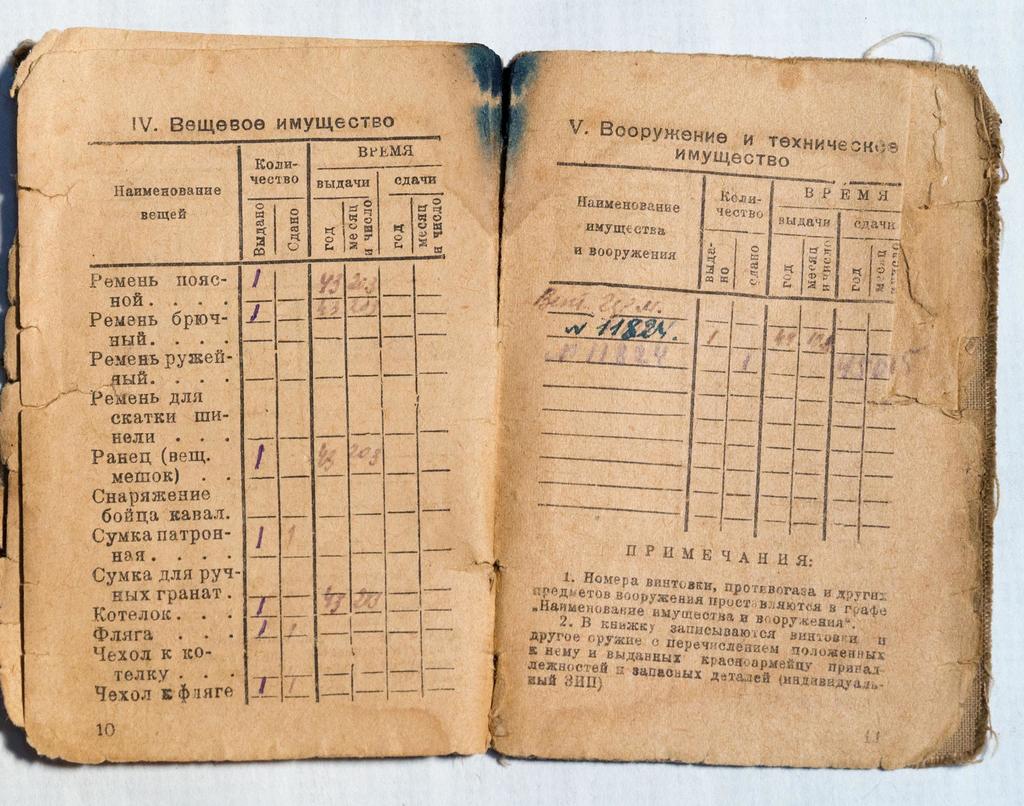 IV. Вещевое имущество
Наименование
вещей
Коли-
чество
ВРЕМЯ
выдачи
сдачи
Выдано
Сдано
год
месяц
и число
год
месяц
и число
Ремень пояс-
ной . . . . 1 43 203
Ремень брюч- 1 43 203
ный. . . . .
Ремень ружей-
ный. . . . .
Ремень для
скатки ши-
нели . . .
Ранец (вещ. 1 43 203
мешок) . .
Снаряжение
бойца кавал.
Сумка патрон- 1 1
ная . . . .
Сумка для руч-
ных гранат .
Котелок . . . 1 43 203
Фляга . . . 1 1
Чехол к ко-
телку . . .
Чехол к фляге 1 1
10
V. Вооружение и техническое
имущество
Наименование
имущества
и вооружения
Коли-
чество
ВРЕМЯ
выдачи
сдачи
выда-
но
сдано
год
месяц
и число
год
месяц
и число
N 11824. 1
N 11824 1
ПРИМЕЧАНИЯ:
1. Номера винтовки, противогаза и других
предметов вооружения проставляются в графе
„Наименование имущества и вооружения".
2. В книжку записываются винтовки и
другое оружие с перечислением положенных
к нему и выданных красноармейцу принад-
лежностей и запасных деталей (индивидуаль-
ный ЗИП)
11